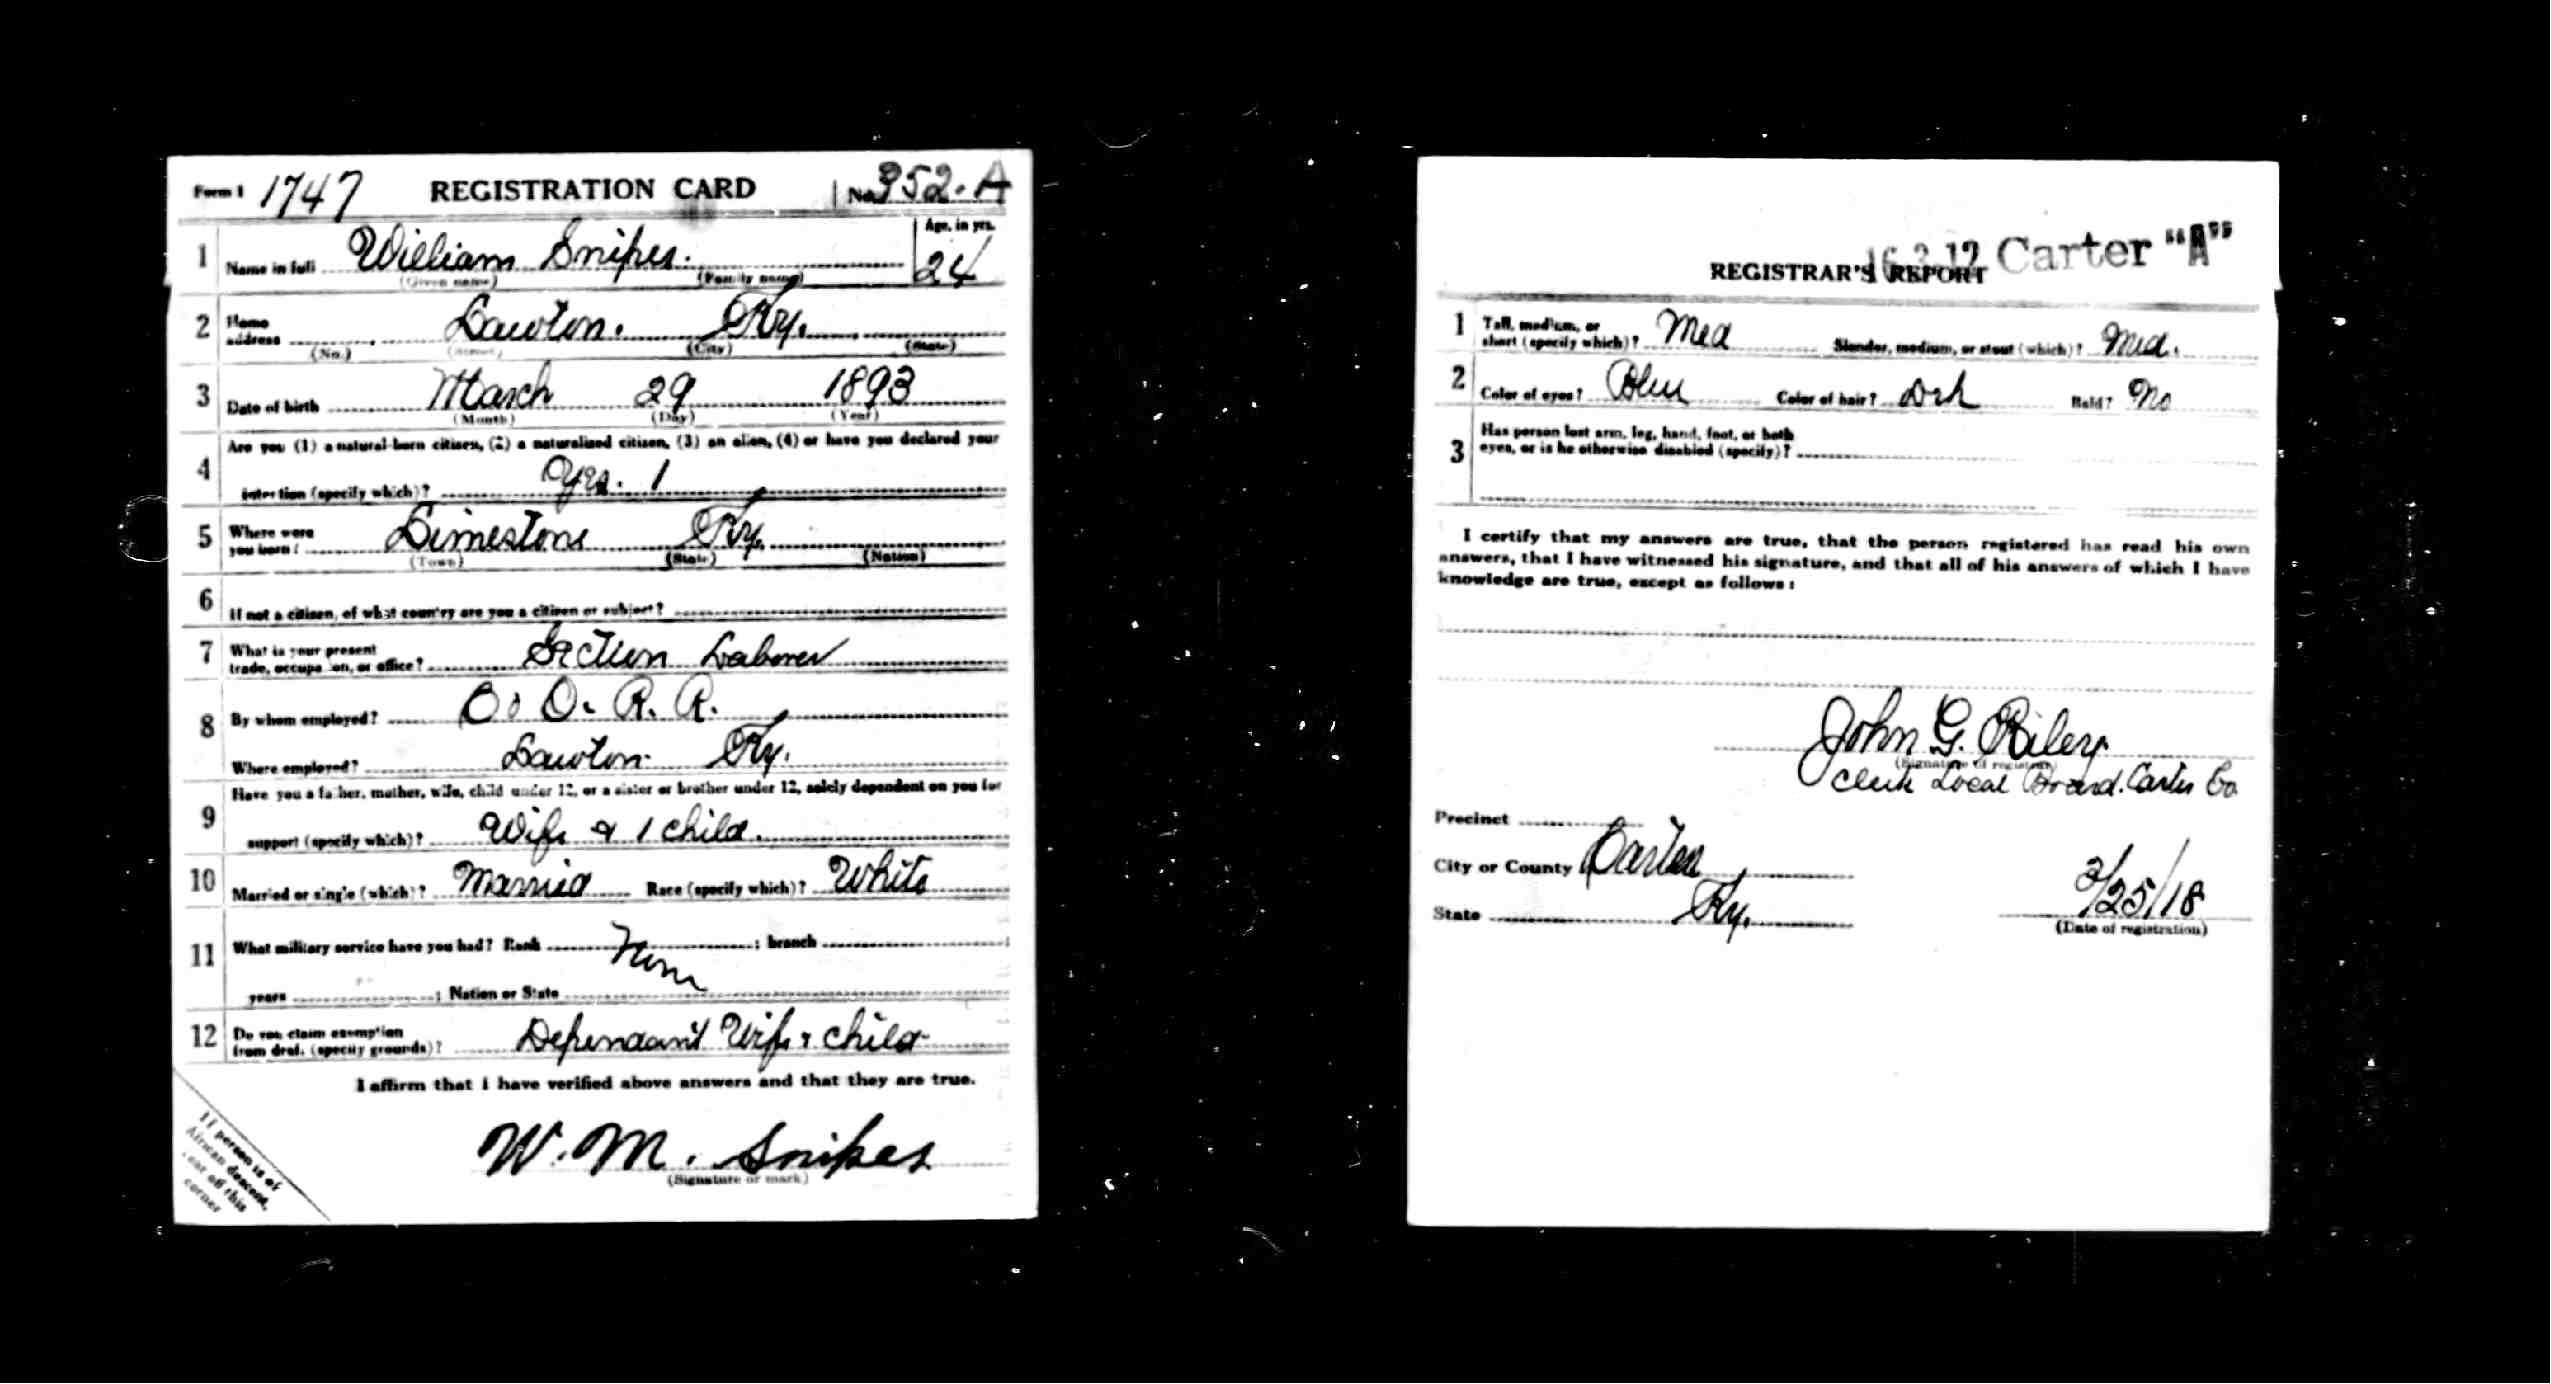 Form 1 1747 REGISTRATION CARD No. 352-A
1 Name in full William Snipes. Age, in yrs. 24
(Given name) (Family name)
2 Home address Lawton. Ky.
(No.) (Street) (City) (State)
3 Date of birth March 29 1893
(Month) (Day) (Year)
4 Are you (1) a natural-born citizen, (2) a naturalized citizen, (3) an alien, (4) or have you declared your
intention (specify which)? Yes. 1
5 Where were you born? Limestone Ky.
(Town) (State) (Nation)
6 If not a citizen, of what country are you a citizen or subject?
7 What is your present
trade, occupation, or office? Section Laborer
8 By whom employed? C. O. R. R.
Where employed? Lawton Ky.
9 Have you a father, mother, wife, child under 12, or a sister or brother under 12, solely dependent on you for
support (specify which)? Wife & 1 child.
10 Married or single (which)? Married Race (specify which)? White
11 What military service have you had? Rank None ; branch
years ; Nation or State
12 Do you claim exemption
from draft (specify grounds)? Dependant Wife & child
I affirm that I have verified above answers and that they are true.
W. M. Snipes
(Signature or mark)
If person is of
African descent,
tear off this
corner
16-3-12 Carter "A"
REGISTRAR'S REPORT
1 Tall, medium, or
short (specify which)? Med Slender, medium, or stout (which)? Med.
2 Color of eyes? Blue Color of hair? Drk Bald? No
3 Has person lost arm, leg, hand, foot, or both
eyes, or is he otherwise disabled (specify)?
I certify that my answers are true, that the person registered has read his own
answers, that I have witnessed his signature, and that all of his answers of which I have
knowledge are true, except as follows:
John G. Riley
(Signature of registrar)
Clerk Local Board. Carter Co
Precinct
City or County Carter
State Ky. 3/25/18
(Date of registration)